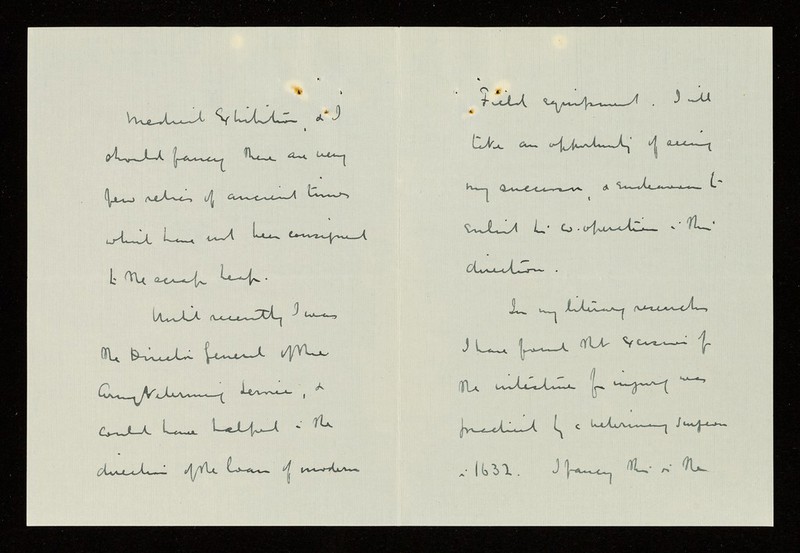 Medical Exhibition, & I
should fancy there are very
few relics of ancient times
which have not been consigned
to the scrap heap.
Until recently I was
the Director General of the
Army Veterinary Service, &
could have helped in the
direction of the loan of modern
Field equipment. I will
take an opportunity of seeing
my successor, & endeavour to
enlist his co-operation in this
direction.
In my literary researches
I have found that excision of
the intestine for injury was
practised by a veterinary surgeon
in 1632. I fancy this is the